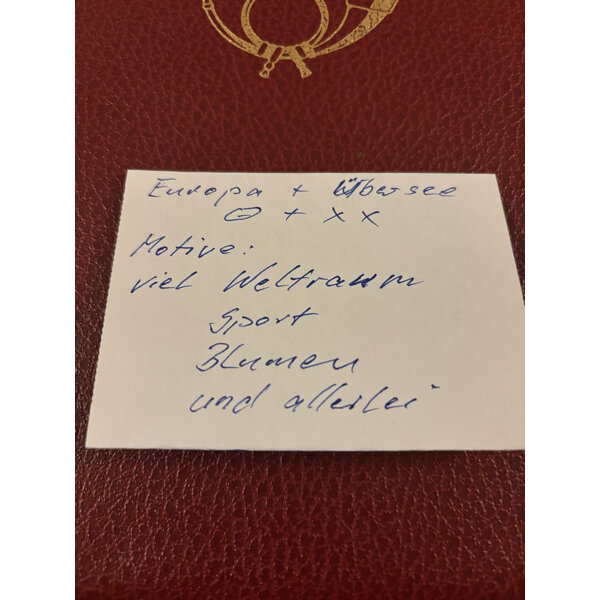 Europa + Übersee
⊖ + x x
Motive:
viel Weltraum
Sport
Blumen
und allerlei